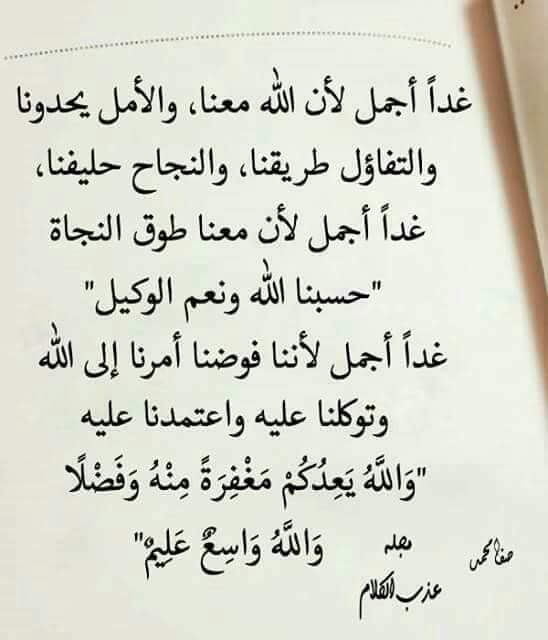 غداً أجمل لأن الله معنا، والأمل يحدونا
والتفاؤل طريقنا، والنجاح حليفنا،
غداً أجمل لأن معنا طوق النجاة
"حسبنا الله ونعم الوكيل"
غداً أجمل لأننا فوضنا أمرنا إلى الله
وتوكلنا عليه واعتمدنا عليه
"وَاللَّهُ يَعِدُكُمْ مَغْفِرَةً مِنْهُ وَفَضْلًا
وَاللَّهُ وَاسِعٌ عَلِيمٌ"
مجلة
عذب الكلام
صفا محمد